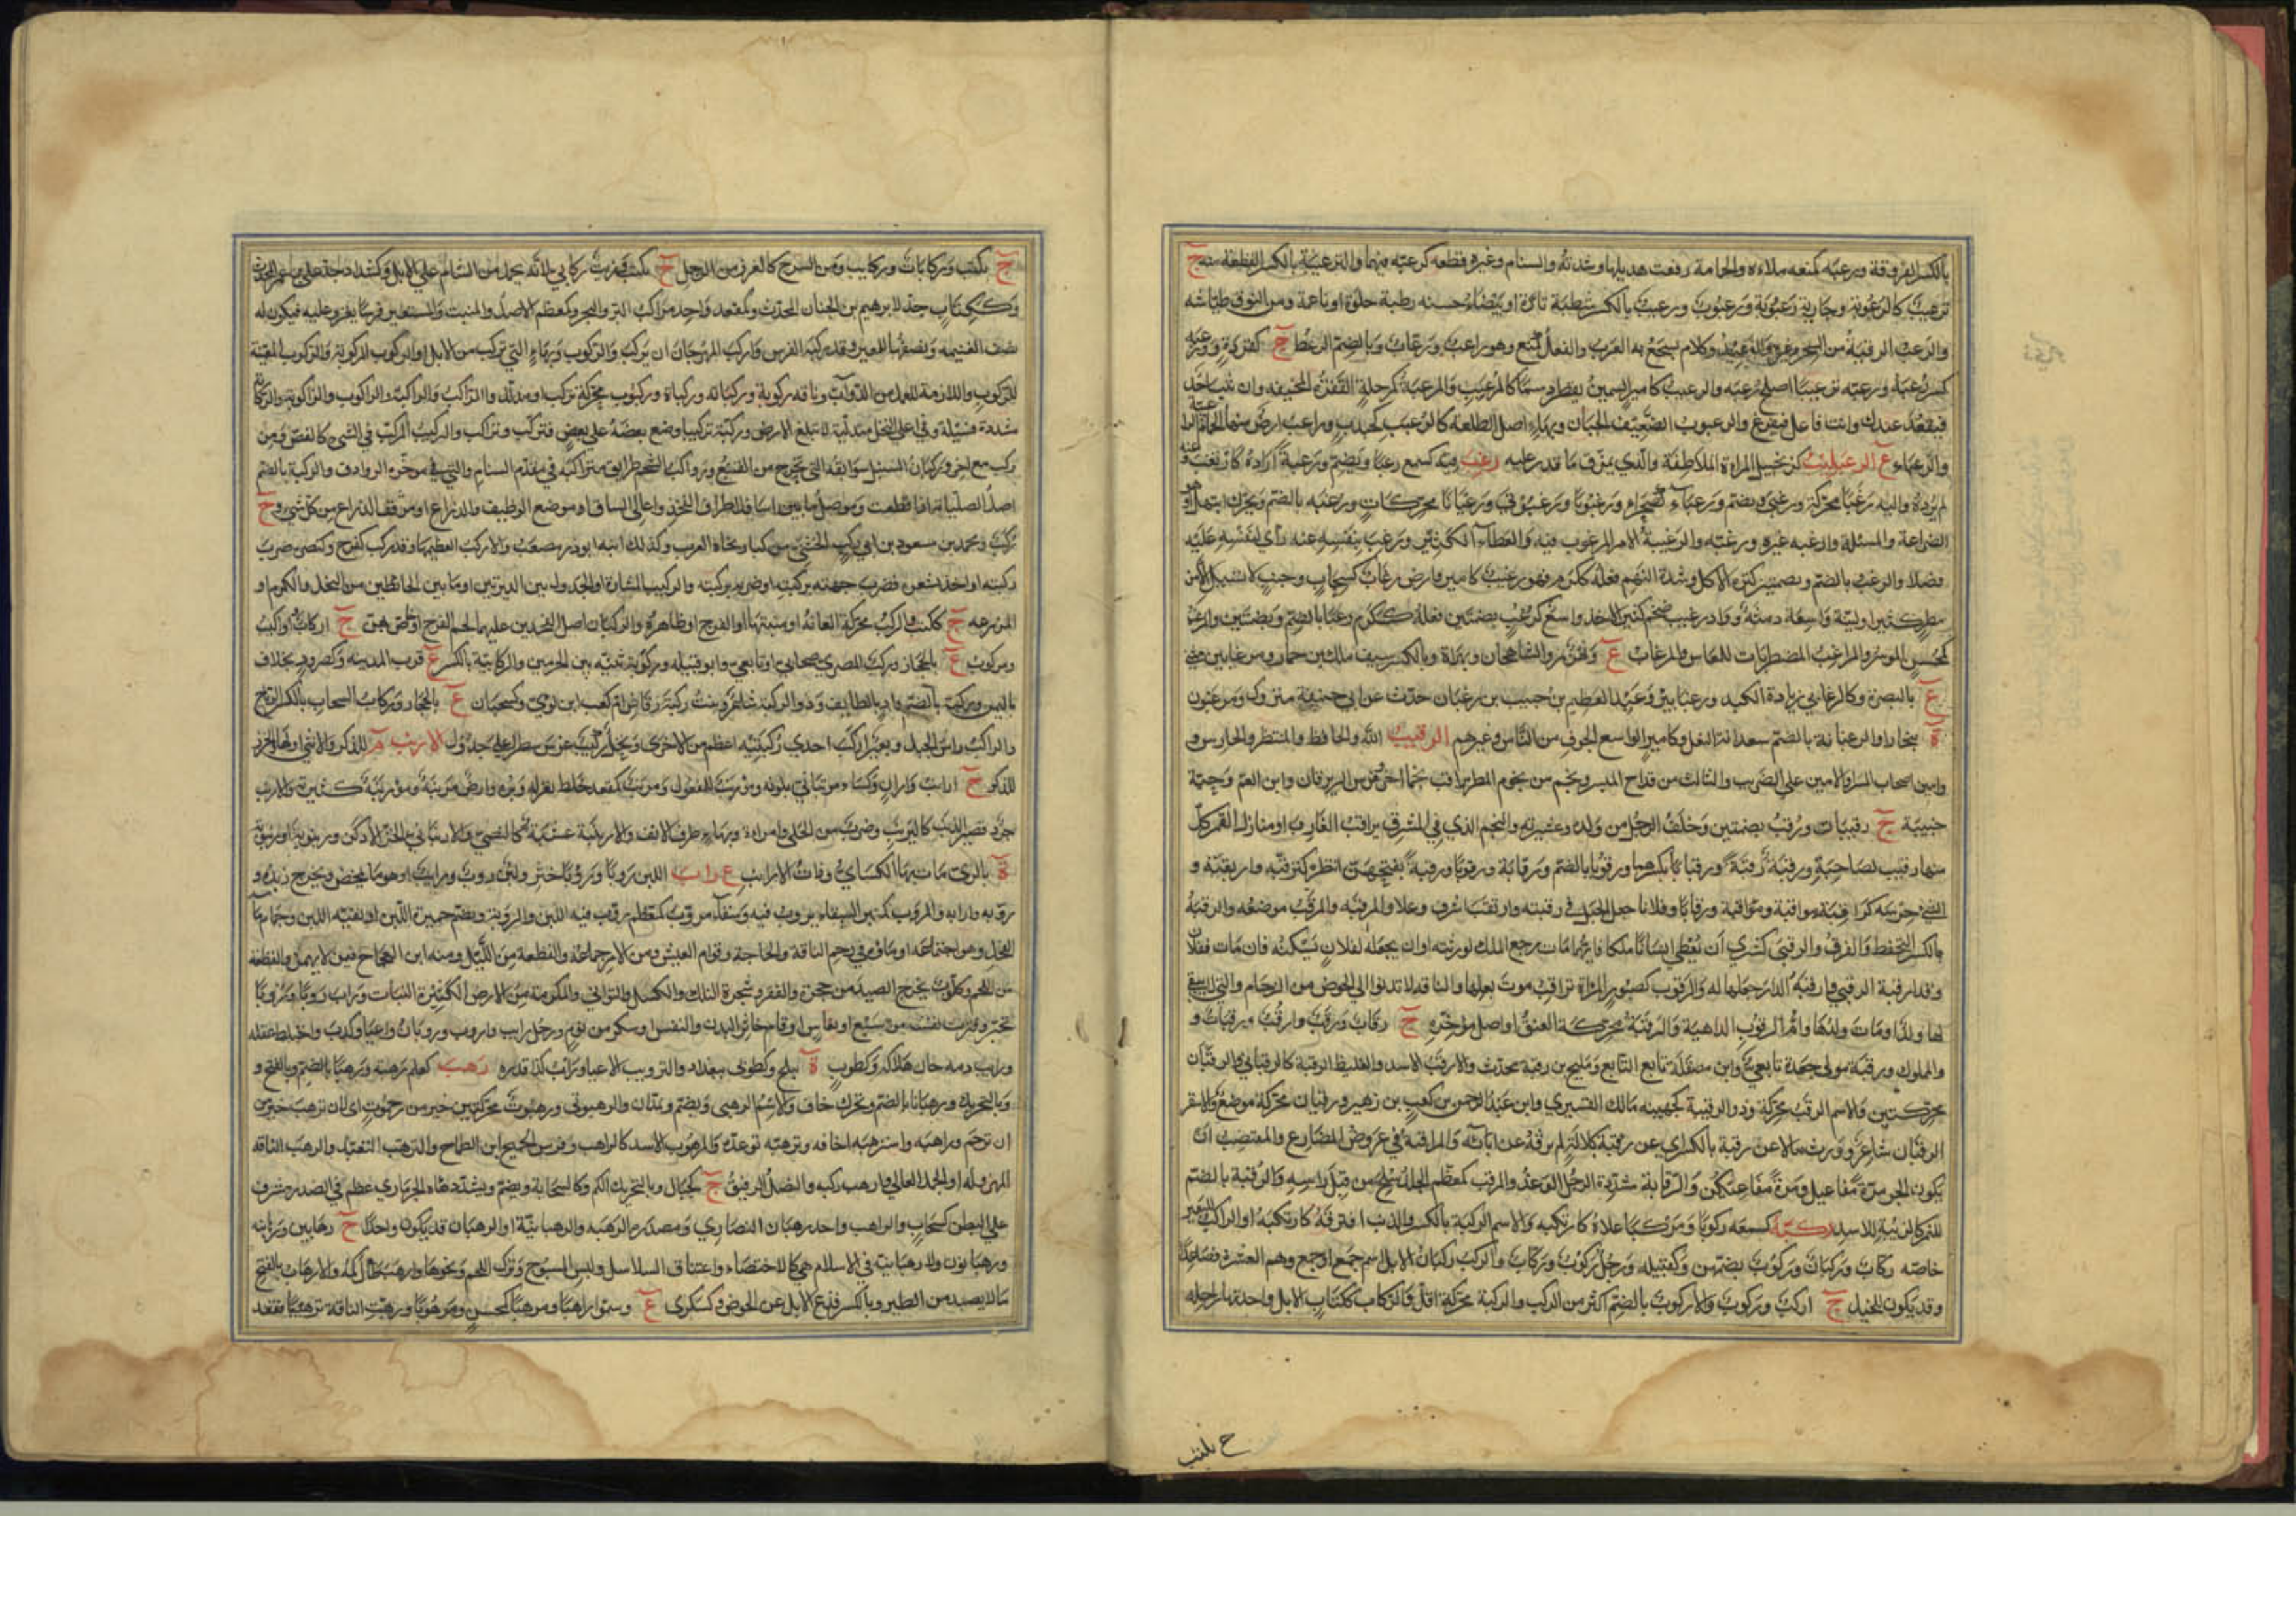 بالكسر الفروقة ورعبه كمنعه ملاءه والحمامة رفعت هديلها وشدته والسنام وغيره قطعه كرعبه فيهما والترعيبة بالكسر القطعة منه ج
ترعيب كالرعبوبة وجارية رعبوبة ورعبوب ورعبيب بالكسر شطبة تارة او بيضاء حسنة رطبة حلوة او ناعمة ومن النوق طياشة
والرعب الرقية من السحر وغيره والوعيد وكلام تسجع به العرب والفعل كمنع وهو راعب ورعاب وبالضم الرعظ ج كقردة ورعبه
كسر رعبه ورعبه ترعيبا اصلح رعبه والرعيب كامير السمين يقطر دسما كالمرعب والمرعبة كمرحلة القفزة المخيفة وان يثب احد
فيقعد عندك وانت غافل فتفزع والرعبوب الضعيف الجبان وبهاء اصل الطلعة كالرعبب كجندب وراعب ارض منها الحمام الراعبية
والرعباء ع الرعبليب كزنجبيل المراة الملاطفة والذي يمزق ما قدر عليه رغب فيه كسمع رغبا ويضم ورغبة اراده كارتغب وعنه
لم يرده واليه رغبا محركة ورغبى ويضم ورغباء كصحراء ورغبوتا ورغبوتى ورغبانا محركات ورغبة بالضم ويحرك ابتهل او هو
الضراعة والمسئلة وارغبه غيره ورغبه والرغيبة الامر المرغوب فيه والعطاء الكثير ورغب بنفسه عنه راى لنفسه عليه
فضلا والرغب بالضم وبضمتين كثرة الاكل وشدة النهم فعله ككرم فهو رغيب كامير وارض رغاب كسحاب وجنب لا تسيل الا من
مطر كثير او لينة واسعة دمثة وواد رغيب ضخم كثير الاخذ واسع كرغب بضمتين فعله ككرم رغبا بالضم وبضمتين والمرغب
كمحسن الموسر والمراغب المضطربات للمعاش والمرغاب ع ونهر بمرو الشاهجان وبهراة وبالكسر سيف مالك بن حمار ومرغابين مثنى
ع بالبصرة وكالرغامى زيادة الكبد ورغباء بير وعبد العظيم بن حبيب بن رغبان حدث عن ابي حنيفة متروك ومرغبون
ة ببخارا والرغبانة بالضم سعدانة النعل وكامير الواسع الجوف من الناس وغيرهم الرقيب الله والحافظ والمنتظر والحارس و
وامين اصحاب الميسر او الامين على الضريب والثالث من قداح الميسر ونجم من نجوم المطر يراقب نجما اخر وفرس الزبرقان وابن العم وحية
خبيثة ج رقيبات ورقب بضمتين وخلف الرجل من ولده وعشيرته والنجم الذي في المشرق يراقب الغارب او منازل القمر كل
منها رقيب لصاحبه ورقبه رقبة ورقبانا بكسرهما ورقوبا بالضم ورقابة ورقوبا ورقبة بفتحهن انتظره كترقبه وارتقبه و
الشي حرسه كراقبه مراقبة ورقابا وفلانا جعل الحبل في رقبته وارتقب اشرف وعلا والمرقبة والمرقب موضعه والرقبة
بالكسر التحفظ والفرق والرقبى كبشرى ان يعطي انسانا ملكا فايهما مات رجع الملك لورثته او ان يجعله لفلان يسكنه فان مات ففلان
وقد ارقبه الرقبى وارقبه الدار جعلها له والرقوب كصبور المراة تراقب موت بعلها والناقة لا تدنو الى الحوض من الزحام والتي لا يبقى
لها ولد او مات ولدها وام الرقوب الداهية والرقبة محركة العنق او اصل موخره ج رقاب ورقب وارقب ورقبات و
والمملوك ورقبة مولى جعدة تابعي وابن مصقلة تابع التابع ومليح بن رقبة محدث والارقب الاسد والغليظ الرقبة كالرقباني والرقبان
محركتين والاسم الرقب محركة وذو الرقيبة كجهينة مالك القشيري وابن عبد الرحمن بن كعب بن زهير ورقبان محركة موضع والاشعر
الرقبان شاعر وورث مالا عن رقبة بالكسر اي عن كلالة لم يرثه عن ابائه والمراقبة في عروض المضارع والمقتضب ان
يكون الجزء مرة مفاعيل ومرة مفاعلن والرقابة مشددة الرجل الوغد والمرقب كمعظم الجلد يسلخ من قبل راسه والرقبة بالضم
للنمر كالزبية للاسد ركبه كسمعه ركوبا ومركبا علاه كارتكبه والاسم الركبة بالكسر والذنب اقترفه كارتكبه او الراكب للبعير
خاصة ركاب وركبان وركوب بضمهن وكفيلة ورجل ركوب وركاب والركب ركبان الابل اسم جمع او جمع وهم العشرة فصاعدا
وقد يكون للخيل ج اركب وركوب والاركوب بالضم اكثر من الركب والركبة محركة اقل والركاب ككتاب الابل واحدتها راحلة
ج ككتب
ج ككتب وركابات وركايب ومن السرج كالغرز من الرحل ج ككتب وزيت ركابي لانه يحمل من الشام على الابل وكشداد جد علي بن عمر المحدث
وككتاب جد لابرهيم بن الجنان المحدث وكمقعد واحد مراكب البر والبحر وكمعظم الاصل والمنبت والمستعير فرسا يغزو عليه فيكون له
نصف الغنيمة ونصفها للمعير وقد ركبه الفرس واركب المهر حان ان يركب والركوب وبهاء التي تركب من الابل او الركوب المركوبة والركوبة المعينة
للركوب واللازمة للعمل من الدواب وناقة ركوبة وركبانة وركباة وركبوت محركة تركب او مذللة والراكب والراكبة والراكوب والراكوبة والركابة
مشددة فسيلة في اعلى النخل متدلية لا تبلغ الارض وركبه تركيبا وضع بعضه على بعض فتركب وتراكب والركيب المركب في الشي كالفص ومن
يركب مع اخر وركبان السنبل سوابقه التي تخرج من القنبع ورواكب الشحم طرايق متراكبة في مقدم السنام والتي في موخره الروادف والركبة بالضم
اصل الصليانة اذا قطعت وموصل ما بين اسافل اطراف الفخذ واعالي الساق او موضع الوظيف والذراع او مرفق الذراع من كل شي ج
ركب ومحمد بن مسعود بن ابي ركب الخشني من كبار نحاة المغرب وكذلك ابنه ابو ذر مصعب والاركب العظيمها وقد ركب كفرح وكنصر ضرب
ركبته او اخذ بشعره فضرب جبهته بركبته او ضربه بركبته والركيب المشارة او الجدول بين الدبرتين او ما بين الحايطين من النخل والكرم او
المزرعة ج ككتب والركب محركة العانة او منبتها او الفرج او ظاهره والركبان اصل الفخذين عليهما لحم الفرج او خاص بهن ج اركاب واراكيب
ومركوب ع بالحجاز وركب المصري صحابي او تابعي وابو قبيلة وركوبة ثنية بين الحرمين والركابية بالكسر ع قرب المدينة وكصرد مخلاف
باليمن وركبة بالضم واد بالطايف وذو الركبة شاعر وبنت ركبة رقاش ام كعب بن لوي وكسحبان ع بالحجاز وركاب السحاب بالكسر الرياح
والراكب راس الجبل وبعير اركب احدى ركبتيه اعظم من الاخرى ونخل ركيب غرس سطرا على جدول الارنب م للذكر والانثى او لها والخزز
للذكر ج ارانب واران وكساء مرنباني بلونه ومؤرنب للمفعول ومرنب كمقعد خلط بغزله وبره وارض مرنبة ومؤرنبة كثيرته والارنب
جرذ قصير الذنب كاليرنب وضرب من الحلى وامراة وبهاء طرف الانف والارينبة عشبة كالنصي والارنباني الخز الادكن ورينوية او رنبوية
ة بالري مات بها الكساي وذات الارانب ع راب اللبن روبا ورؤوبا خثر ولبن روب ورايب او هو ما يمخض ويخرج زبده و
روبه وارابه والمروب كمنبر السقاء يروب فيه وسقاء مروب كمعظم روب فيه اللبن والروبة ويضم خميرة اللبن او بقية اللبن وجمام ماء
الفحل وهو اجتماعه او ماؤه في رحم الناقة والحاجة وقوام العيش ومن الامر جماعه والقطعة من الليل ومنه ابن العجاج فيمن لا يهمز والقطعة
من اللحم وكلوب يخرج الصيد من جحره والفقر وشجرة النلك والكسل والتواني والمكرمة من الارض الكثيرة النبات وراب روبا ورؤوبا
تحير وفترت نفسه من شبع او نعاس او قام خاثر البدن والنفس او سكر من نوم ورجل رايب واروب وروبان واعيا وكذب واختلط عقله
وراب دمه حان هلاكه وكطوب ة ببلخ وكطوبى ببغداد والترويب الاعياء وراب كذا قدره رهب كعلم رهبة ورهبا بالضم وبالفتح و
وبالتحريك ورهبانا بالضم ويحرك خاف والاسم الرهبى ويضم ويمدان والرهبوتى ورهبوت محركتين خير من رحموت اي لان ترهب خير من
ان ترحم وارهبه واسترهبه اخافه وترهبه توعده والمرهوب الاسد كالراهب وفرس الجميح ابن الطماح والترهب التعبد والرهب الناقة
المهزولة او الجمل العالي وارهب ركبه والنصل الرقيق ج كحبال وبالتحريك الكم وكالسحابة ويضم ويشدد هاء الحرمازي عظم في الصدر مشرف
على البطن كسحاب والراهب واحد رهبان النصارى ومصدره الرهبة والرهبانية او الرهبان قد يكون واحدا ج رهابين ورهابنة
ورهبانون ولا رهبانية في الاسلام هي كالاختصاء واعتناق السلاسل ولبس المسوح وترك اللحم ونحوها وارهب طال كمه والارهاب بالفتح
ما لا يصيد من الطير وبالكسر قدع الابل عن الحوض وكسكرى ع وسموا راهبا ومرهبا كمحسن ومرهوبا ورهبت الناقة ترهيبا فقعد